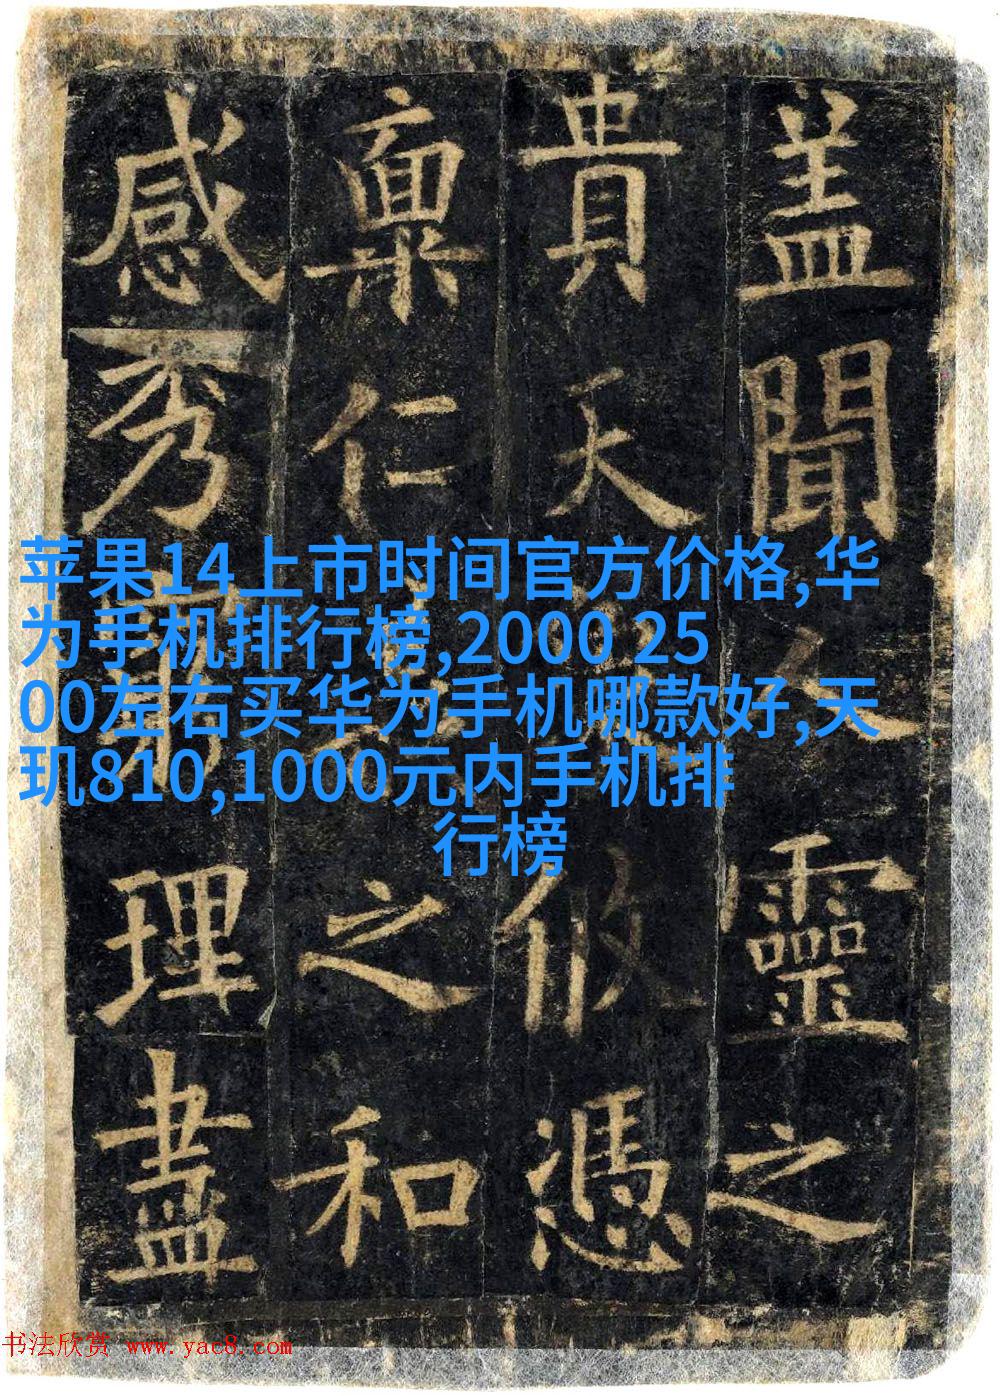 盖聞人靈之
貴天攸憑
禀仁之和
感秀理盡
苹果14上市时间官方价格,华
为手机排行榜,2000 25
00左右买华为手机哪款好,天
玑810,1000元内手机排
行榜
书法欣赏 www.yac8.com